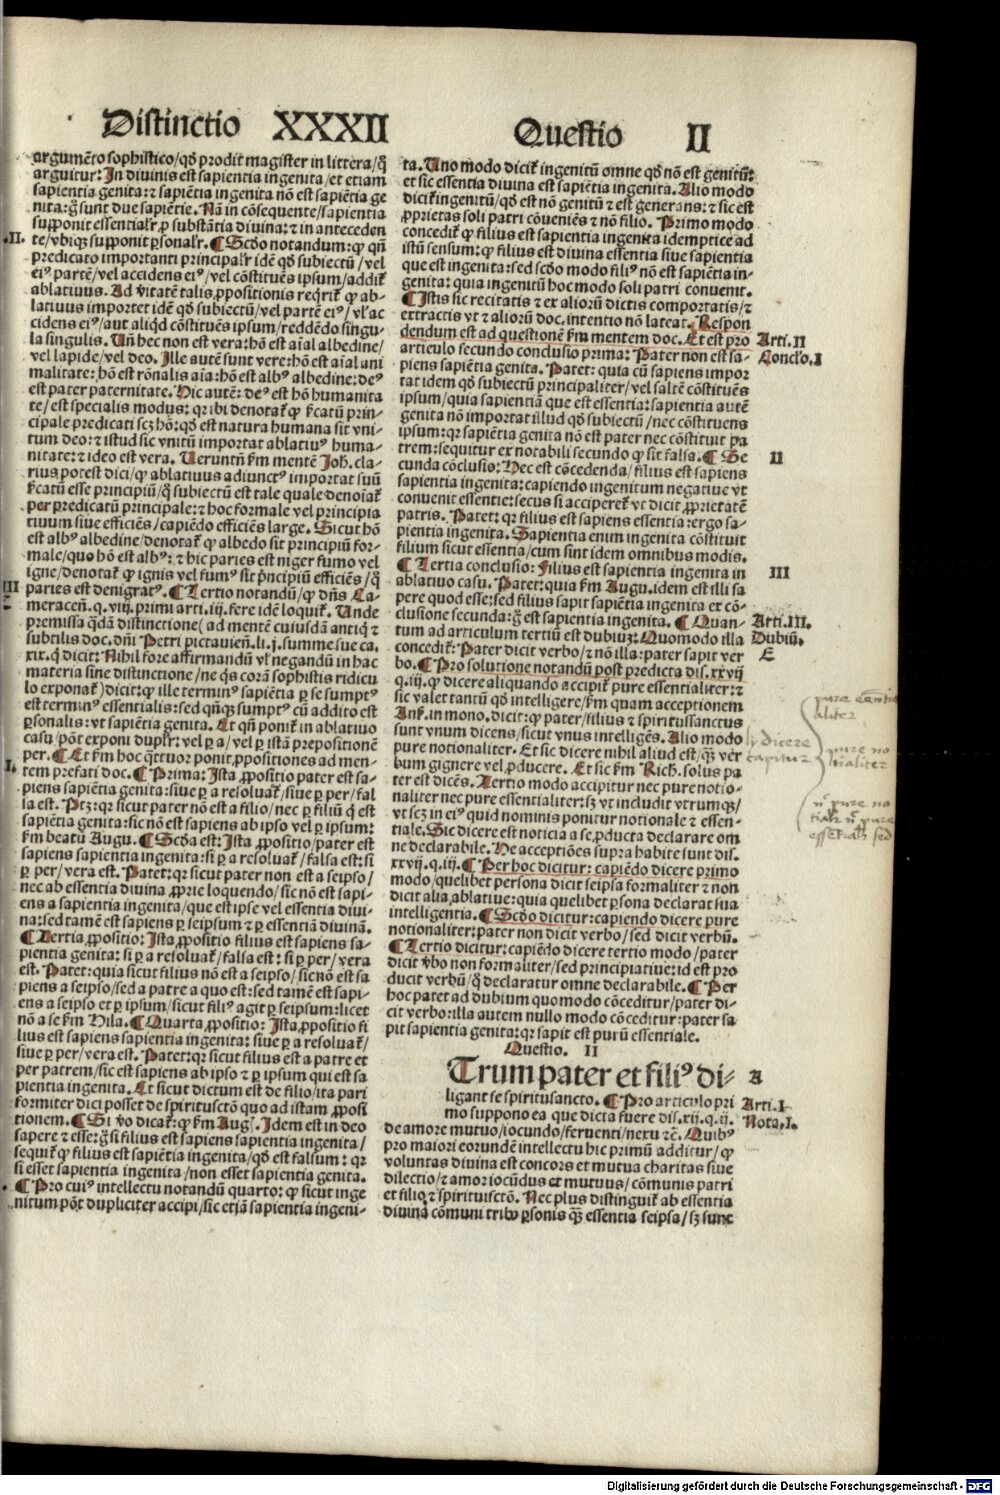 Distinctio XXXII
Questio II
argumēto sophistico/qđ prodit magister in littera/q̄
arguitur: In diuinis est sapientia ingenita/et etiam
sapientia genita: ⁊ sapiētia ingenita nō est sapiētia ge
nita: g̊ sunt due sapiētie. Nā in cōsequente/sapientia
supponit essentialr̄ ꝓ substātia diuina: ⁊ in anteceden
.II.
te/vbiqꝫ supponit ꝑsonalr̄. ¶ Scđo notandum: ꝙ qn̄
predicato importanti principalr̄ idē qđ subiectū/vel
eiꝰ partē/vel accidens eiꝰ/vel cōstituēs ipsum/addit̄
ablatiuus. Ad v̄itatē talis ꝓpositionis reqrit̄ ꝙ ab-
latiuus importet idē qđ subiectū/vel partē eiꝰ/vl̄ ac
cidens eiꝰ/aut aliqd cōstituēs ipsum/reddēdo singu-
la singulis. Un̄ hec non est vera: hō est aīal albedine/
vel lapide/vel deo. Ille autē sunt vere: hō est aīal ani
malitate: hō est rōnalis aīa: hō est albꝰ albedine: deꝰ
est pater paternitate. Hic autē: deꝰ est hō humanita
te/est specialis modus: qꝛ ibi denotat̄ ꝙ sc̄atū prin-
cipale predicati scꝫ hō: qđ est natura humana sit vni-
tum deo: ⁊ istud sic vnitū importat ablatiuꝰ huma-
nitate: ⁊ ideo est vera. Ueruntn̄ sm̄ mentē Joh. cla-
rius potest dici/ꝙ ablatiuus adiunctꝰ importat suū
sc̄atū esse principiū/q̊ subiectū est tale quale denotat̄
per predicatū principale: ⁊ hoc formale vel principia
tiuum siue efficiēs/capiēdo efficiēs large. Sicut hō
est albꝰ albedine/denotat̄ ꝙ albedo sit principiū for-
male/quo hō est albꝰ: ⁊ hic paries est niger fumo vel
igne/denotat̄ ꝙ ignis vel fumꝰ sit pn̄cipiū efficiēs/q̊
III
paries est denigratꝰ. ¶ Tertio notandū/ꝙ dn̄s Ca-
meraceñ. q. viij. primi arti. iij. fere idē loquit̄. Unde
premissa q̄dā distinctione ( ad mentē cuiusdā antiq̄ ⁊
subtilis doc. dn̄i Petri pictauieñ. li. j. summe sue ca.
xix. q̊ dicit: Nihil fore affirmandū vl̄ negandū in hac
materia sine distinctione/ne q̄s corā sophistis ridicu
lo exponat̄) dicit: ꝙ ille terminꝰ sapiētia ꝑ se sumptꝰ
est terminꝰ essentialis: sed qn̄qꝫ sumptꝰ cū addito est
ꝑsonalis: vt sapiētia genita. Et qn̄ ponit̄ in ablatiuo
casu/pōt exponi duplr̄: vel ꝑ a/vel ꝑ istā prepositionē
per. ¶ Et sm̄ hoc q̄ttuor ponit ꝓpositiones ad men-
I.
tem prefati doc. ¶ Prima: Ista ꝓpositio pater est sa-
piens sapiētia genita: siue ꝑ a resoluat̄/siue ꝑ per/fal
la est. Ptꝫ: qꝛ sicut pater nō est a filio/nec ꝑ filiū q̊ est
sapiētia genita: sic nō est sapiens ab ipso vel ꝑ ipsum:
sm̄ beatū Augu. ¶ Scđa est: Ista ꝓpositio/pater est
sapiens sapientia ingenita: si ꝑ a resoluat̄/falsa est: si
ꝑ per/vera est. Patet: qꝛ sicut pater non est a seipso/
nec ab essentia diuina ꝓprie loquendo/sic nō est sapi-
ens a sapientia ingenita/que est ipse vel essentia diui-
na: sed tamē est sapiens ꝑ seipsum ⁊ ꝑ essentiā diuinā.
¶ Tertia ꝓpositio: Ista ꝓpositio filius est sapiens sa-
pientia genita: si ꝑ a resoluat̄/falsa est: si ꝑ per/vera
est. Patet: quia sicut filius nō est a seipso/sic nō est sa
piens a seipso/sed a patre a quo est: sed tamē est sapi-
ens a seipso et ꝑ ipsum/sicut filiꝰ agit ꝑ seipsum: licet
nō a se sm̄ Hila. ¶ Quarta ꝓpositio: Ista ꝓpositio fi
lius est sapiens sapientia ingenita: siue ꝑ a resoluat̄/
siue ꝑ per/vera est. Patet: qꝛ sicut filius est a patre et
per patrem/sic est sapiens ab ipso ⁊ ꝑ ipsum qui est sa
pientia ingenita. Et sicut dictum est de filio/ita pari
formiter dici posset de spiritusctō quo ad istam ꝓposi
tionem. ¶ Si v̄o dicat̄: ꝙ sm̄ Augꝰ. Idem est in deo
sapere ⁊ esse: g̊ si filius est sapiens sapientia ingenita/
sequit̄ ꝙ filius est sapiētia ingenita/qđ est falsum: qꝛ
si esset sapientia ingenita/non esset sapientia genita.
¶ Pro cuiꝰ intellectu notandū quarto: ꝙ sicut inge
nitum pōt dupliciter accipi/sic etiā sapientia ingeni-
ta. Uno modo dicit̄ ingenitū omne qđ nō est genitū:
et sic essentia diuina est sapiētia ingenita. Alio modo
dicit̄ ingenitū/qđ est nō genitū ⁊ est generans: ⁊ sic est
ꝓprietas soli patri cōueniēs ⁊ nō filio. Primo modo
concedit̄ ꝙ filius est sapientia ingenita idemptice ad
istū sensum: ꝙ filius est diuina essentia siue sapientia
que est ingenita: sed scđo modo filiꝰ nō est sapiētia in-
genita: quia ingenitū hoc modo soli patri conuenit.
¶ Istis sic recitatis ⁊ ex aliorū dictis comportatis/⁊
extractis vt ⁊ aliorū doc. intentio nō lateat. Respon
dendum est ad questionē sm̄ mentem doc. Et est pro
Arti. II
articulo secundo conclusio prima: Pater non est sa-
Conclo. I
piens sapiētia genita. Patet: quia cū sapiens impor
tat idem qđ subiectū principaliter/vel saltē cōstituēs
ipsum/quia sapientiā que est essentia: sapientia autē
genita nō importat illud qđ subiectū/nec cōstituens
ipsum: qꝛ sapiētia genita nō est pater nec cōstituit pa
trem: sequitur ex notabili secundo ꝙ sit falsa. ¶ Se
II
cunda cōclusio: Hec est cōcedenda/filius est sapiens
sapientia ingenita: capiendo ingenitum negatiue vt
conuenit essentie: secus si acciperet̄ vt dicit ꝓprietatē
patris. Patet: qꝛ filius est sapiens essentia: ergo sa-
pientia ingenita. Sapientia enim ingenita cōstituit
filium sicut essentia/cum sint idem omnibus modis.
¶ Tertia conclusio: Filius est sapientia ingenita in
III
ablatiuo casu. Patet: quia sm̄ Augu. idem est illi sa
pere quod esse: sed filius sapit sapiētia ingenita ex cō-
clusione secunda: g̊ est sapientia ingenita. ¶ Quan-
Arti. III.
tum ad articulum tertiū est dubiuꝫ: Quomodo illa
Dubiū.
concedit̄: Pater dicit verbo/⁊ nō illa: pater sapit ver
E
bo. ¶ Pro solutione notandū post predicta dis. xxvij
q. iij. ꝙ dicere aliquando accipit̄ pure essentialiter: ⁊
sic valet tantū qđ intelligere/sm̄ quam acceptionem
Ans̄. in mono. dicit: ꝙ pater/filius ⁊ spiritussanctus
sunt vnum dicens/sicut vnus intelligēs. Alio modo
pure notionaliter. Et sic dicere nihil aliud est/q̄ꝫ ver
bum gignere vel ꝓducere. Et sic sm̄ Rich. solus pa
ter est dicēs. Tertio modo accipitur nec pure notio-
naliter nec pure essentialiter: sꝫ vt includit vtrumqꝫ/
vt scꝫ in eiꝰ quid nominis ponitur notionale ⁊ essen-
tiale. Sic dicere est noticia a se ꝓducta declarare om
ne declarabile. He acceptiōes supra habite sunt dis.
xxvij. q. iij. ¶ Per hoc dicitur: capiēdo dicere primo
modo/quelibet persona dicit seipsa formaliter ⁊ non
dicit alia ablatiue: quia quelibet ꝑsona declarat sua
intelligentia. ¶ Scđo dicitur: capiendo dicere pure
notionaliter: pater non dicit verbo/sed dicit verbū.
¶ Tertio dicitur: capiēdo dicere tertio modo/pater
dicit v̄bo non formaliter/sed principiatiue: id est pro
ducit verbū/q̊ declaratur omne declarabile. ¶ Per
hoc patet ad dubium quomodo cōceditur/pater di-
cit verbo: illa autem nullo modo cōceditur: pater sa-
pit sapientia genita: qꝛ sapit est purū essentiale.
Questio. II
Trum pater et filiꝰ di-
A
ligant se spiritusancto. ¶ Pro articulo pri
Arti. I
mo suppono ea que dicta fuere dis. xij. q. ij.
Nota. I.
de amore mutuo/iocundo/feruenti/nexu ⁊c̄. Quibꝰ
pro maiori eorundē intellectu hic primū additur/ꝙ
voluntas diuina est concors et mutua charitas siue
dilectio/⁊ amor iocūdus et mutuus/cōmunis patri
et filio ⁊ spirituisctō. Nec plus distinguit̄ ab essentia
diuina cōmuni tribꝰ ꝑsonis q̄ꝫ essentia seipsa/sꝫ sunt
dicere
capitur
pure essenti
aliter
pure no
tionaliter
nec pure no
tialiter nec pure
essentialiter sed
Digitalisierung gefördert durch die Deutsche Forschungsgemeinschaft - DFG